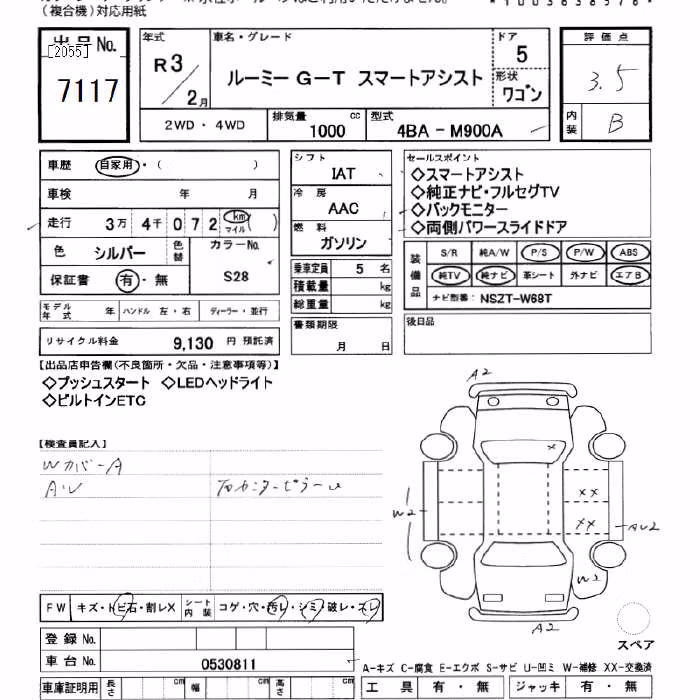 (複合機)対応用紙
出品No.
[2055]
7117
年式
R3
2月
車名・グレード
ルーミー G-T スマートアシスト
ドア
5
形状
ワゴン
評価点
3.5
内装
B
2WD・4WD
排気量
1000
cc
型式
4BA-M900A
車歴
自家用・( )
車検
年 月
走行
3万 4千 0 7 2 km マイル ( )
色
シルバー
色替
カラーNo.
S28
保証書
有・無
モデル年式
年
ハンドル 左・右
ディーラー・並行
リサイクル料金
9,130 円 預託済
シフト
IAT
冷房
AAC
燃料
ガソリン
乗車定員 5 名
積載量 kg
総重量 kg
書類期限
月 日
セールスポイント
◇スマートアシスト
◇純正ナビ・フルセグTV
◇バックモニター
◇両側パワースライドドア
装備品
S/R 純A/W P/S P/W ABS
純TV 純ナビ 革シート 外ナビ エアB
ナビ型番: NSZT-W68T
後日品
【出品店申告欄(不良箇所・欠品・注意事項等)】
◇プッシュスタート ◇LEDヘッドライト
◇ビルトインETC
【検査員記入】
Wカバー A
A2
W2
W2
A2
FW
キズ・トビ石・割レX
シート内装
コゲ・穴・汚レ・シミ・破レ・スレ
登録No.
車台No.
0530811
車庫証明用
長さ cm
幅 cm
高さ cm
スペア
A-キズ C-腐食 E-エクボ S-サビ U-凹ミ W-補修 XX-交換済
工具 有・無
ジャッキ 有・無